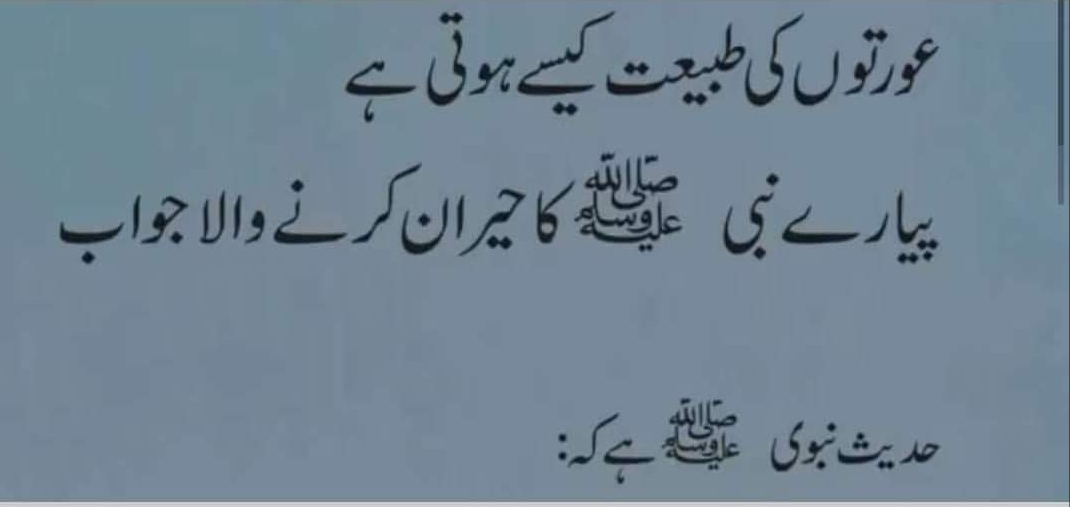 عورتوں کی طبیعت کیسے ہوتی ہے
پیارے نبی ﷺ کا حیران کرنے والا جواب
حدیث نبوی ﷺ ہے کہ: